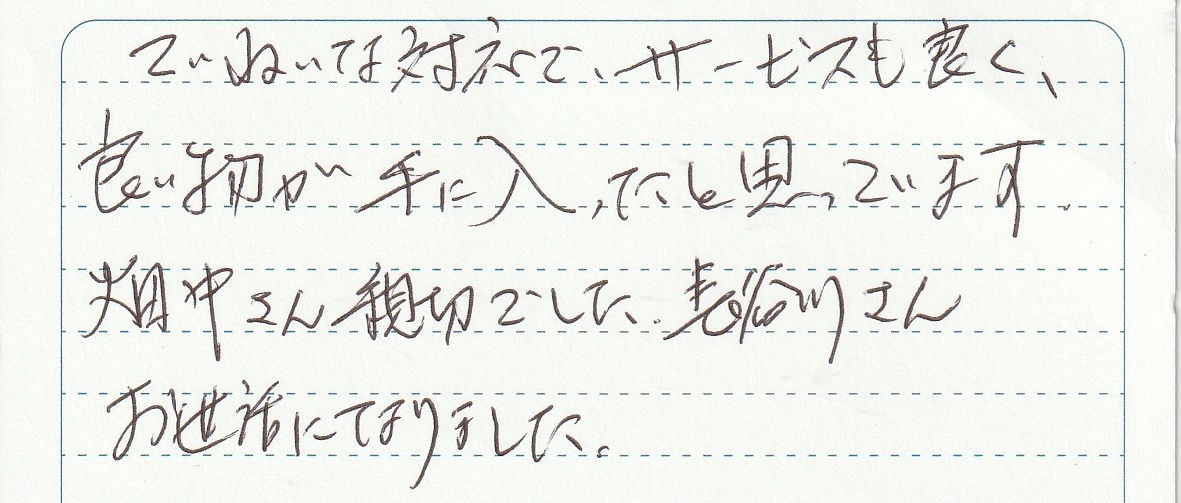 ていねいな対応で、サービスも良く、
良い物が手に入ったと思っています.
畑中さん親切でした. 長谷川さん
お世話になりました。